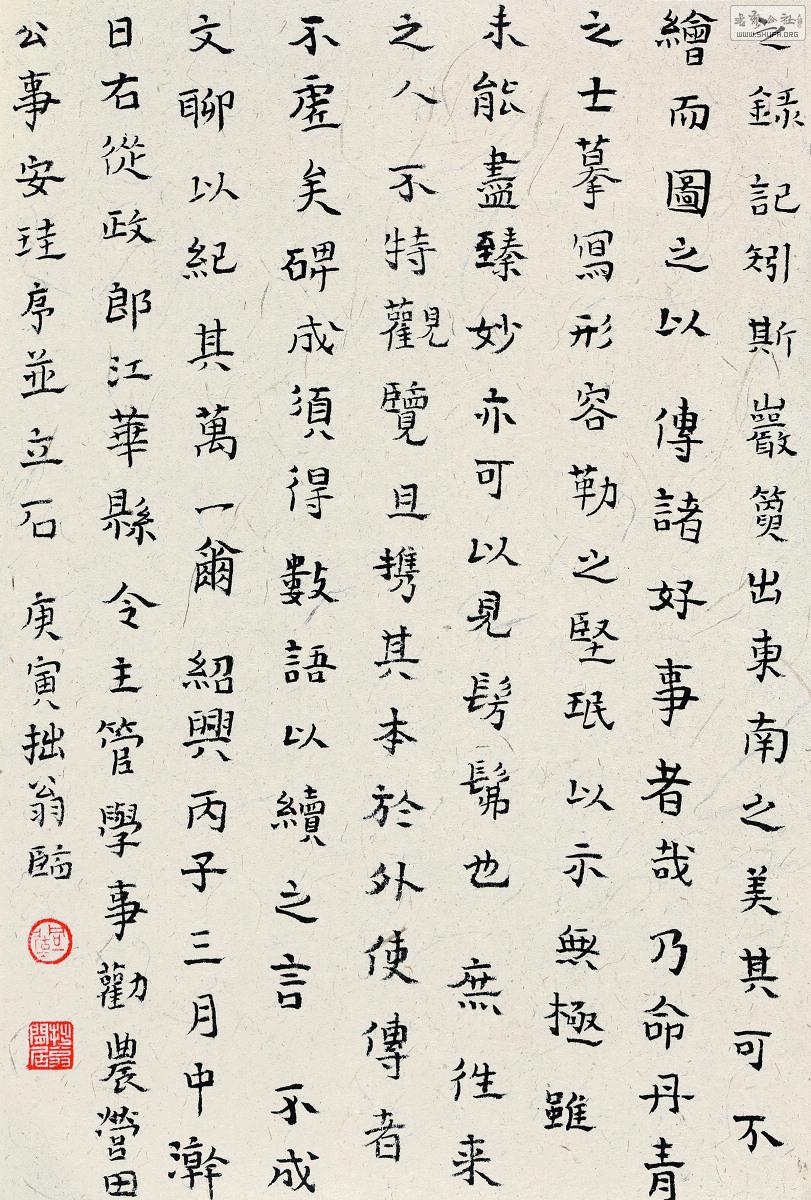 之錄記矧斯巖竇出東南之美其可不
繪而圖之以傳諸好事者哉乃命丹青
之士摹寫形容勒之堅珉以示無極雖
未能盡臻妙亦可以見髣髴也庶往来
之人不特觀覽且攜其本於外使傳者
不虛矣碑成須得數語以續之言不成
文聊以紀其萬一爾紹興丙子三月中澣
日右從政郎江華縣令主管學事勸農營田
公事安珪序並立石庚寅拙翁臨
WWW.SHUFA.ORG